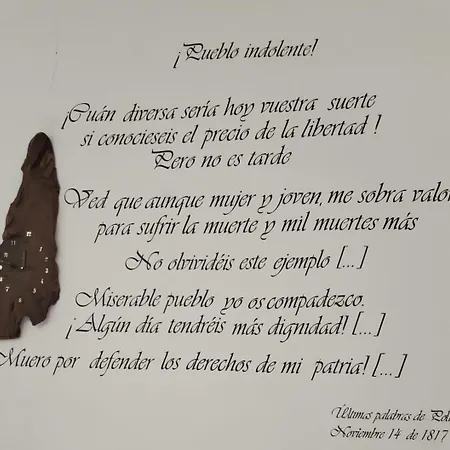 ¡Pueblo indolente!
¡Cuán diversa sería hoy vuestra suerte
si conocieseis el precio de la libertad !
Pero no es tarde
Ved que aunque mujer y joven, me sobra valor
para sufrir la muerte y mil muertes más
No olvividéis este ejemplo [...]
Miserable pueblo yo os compadezco.
¡Algún día tendréis más dignidad! [...]
Muero por defender los derechos de mi patria! [...]
Últimas palabras de Pola
Noviembre 14 de 1817